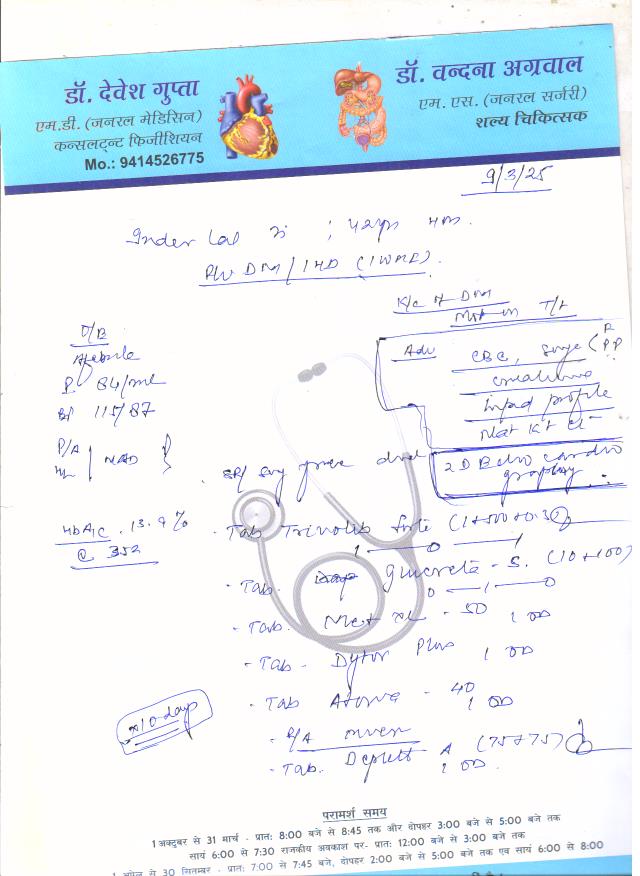 डॉ. देवेश गुप्ता
एम.डी. (जनरल मेडिसिन)
कन्सलटन्ट फिजीशियन
Mo.: 9414526775
डॉ. वन्दना अग्रवाल
एम. एस. (जनरल सर्जरी)
शल्य चिकित्सक
9/3/25
Inder Lal
DM / IHD (IWMI).
K/c of DM
Not on T/t
O/B
Afebrile
P 84/
115/87
P/A
NAD
HbA1C . 13.9%
352
Adv
CBC, (F PP
creatinine
lipid profile
Na+ K+ Cl-
2D Echo cardio
graphy
- Tab Trivolib forte (1+500+0.3)
1 — 0 — 1
- Tab. Glucreta - S. (10+100)
0 — 1 — 0
- Tab. Met XL - 50 1 OD
- Tab - Dytor Plus 1 OD
- Tab Atorva - 40
1 OD
- Tab. Deplatt A (75+75)
1 OD.
x10 days
परामर्श समय
1 अक्टूबर से 31 मार्च - प्रातः 8:00 बजे से 8:45 तक और दोपहर 3:00 बजे से 5:00 बजे तक
सायं 6:00 से 7:30 राजकीय अवकाश पर- प्रातः 12:00 बजे से 3:00 बजे तक
1 अप्रेल से 30 सितम्बर - प्रातः 7:00 से 7:45 बजे, दोपहर 2:00 से 5:00 बजे तक एवं सायं 6:00 से 8:00